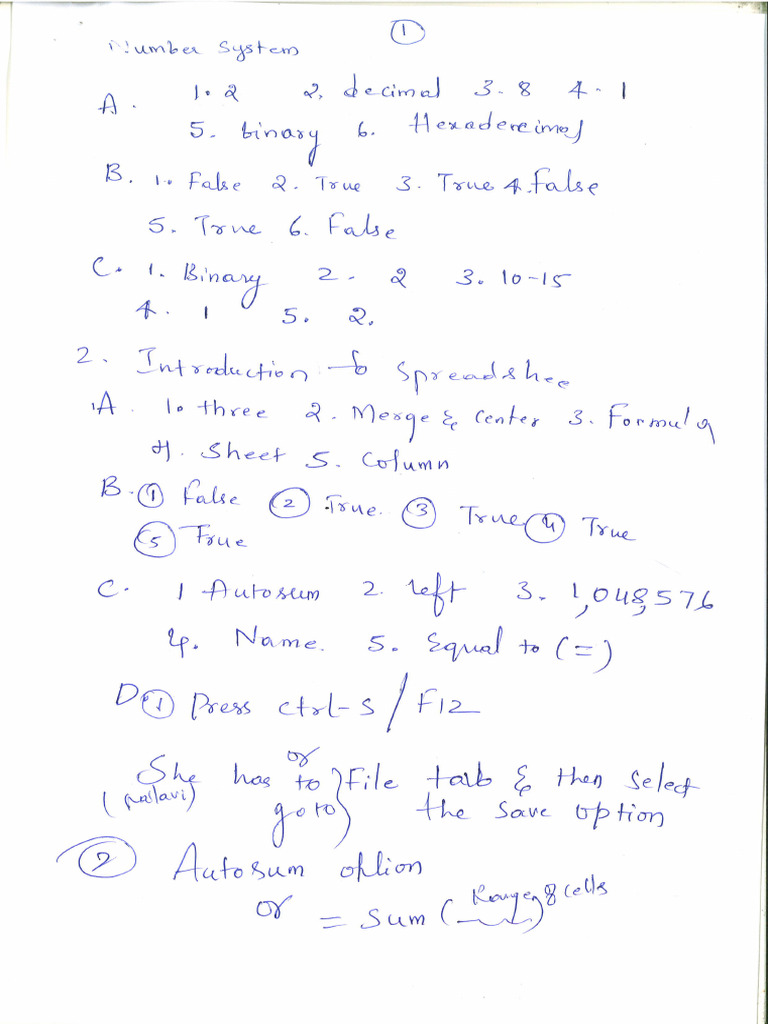 1
Number System
A. 1. 2 2. decimal 3. 8 4. 1
5. binary 6. Hexadecimal
B. 1. False 2. True 3. True 4. False
5. True 6. False
C. 1. Binary 2. 2 3. 10-15
4. 1 5. 2.
2. Introduction to Spreadshee
A. 1. three 2. Merge & Center 3. Formula
4. Sheet 5. Column
B. 1 False 2 True. 3 True 4 True
5 True
C. 1 Autosum 2. left 3. 1,048,576
4. Name. 5. Equal to (=)
D. 1 Press ctrl-S / F12
or
She has to File tab & then select
(pallavi) go to the save option
2 Autosum option
or = Sum (Range of cells)